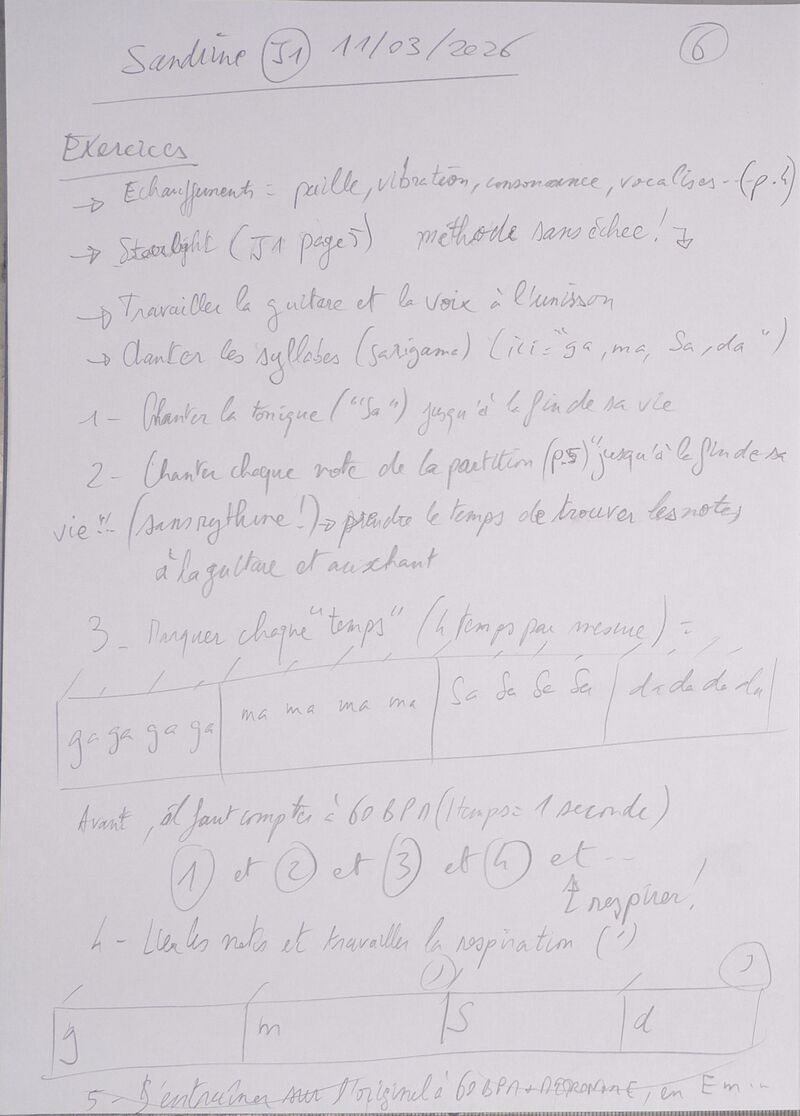 Sandrine J1 11/03/2026 6
Exercices
→ Echauffements = paille, vibration, consonance, vocalises... (p.4)
→ Starlight (J1 page 5) méthode sans échec! ↴
→ Travailler la guitare et la voix à l'unisson
→ Chanter les syllabes (sarigama) (ici = "ga, ma, Sa, da")
1 - Chanter la tonique ("Sa") jusqu'à la fin de sa vie
2 - Chanter chaque note de la partition (p.5) "jusqu'à la fin de sa
vie"... (sans rythme!) → prendre le temps de trouver les notes
à la guitare et au chant
3 - Marquer chaque "temps" (4 temps par mesure) =
ga ga ga ga ma ma ma ma Sa Sa Sa Sa da da da da
Avant, il faut compter à 60 BPM (1 temps = 1 seconde)
1 et 2 et 3 et 4 et ...
↑ respirer!
4 - Lier les notes et travailler la respiration (')
g m S d
5 - S'entraîner sur l'original à 60 BPM en Em...